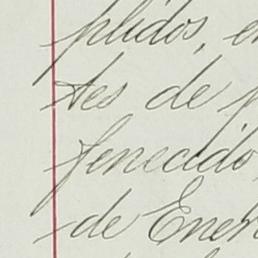 plidos, en
tes de p
fenecido,
de Ener